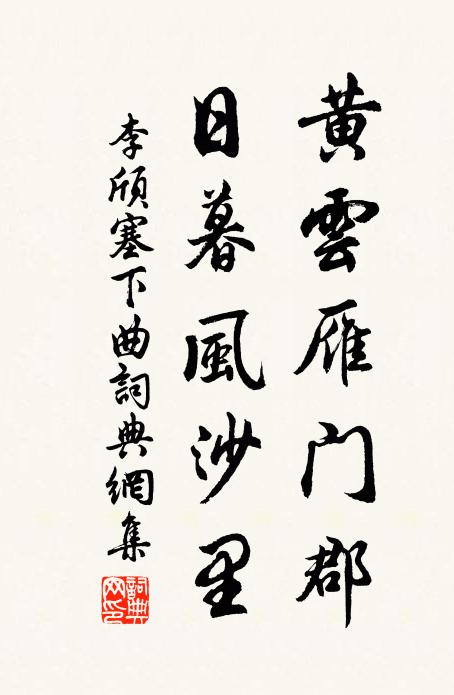 黄雲雁门郡
日暮風沙里
李頎塞下曲詞典網集
詞典网印